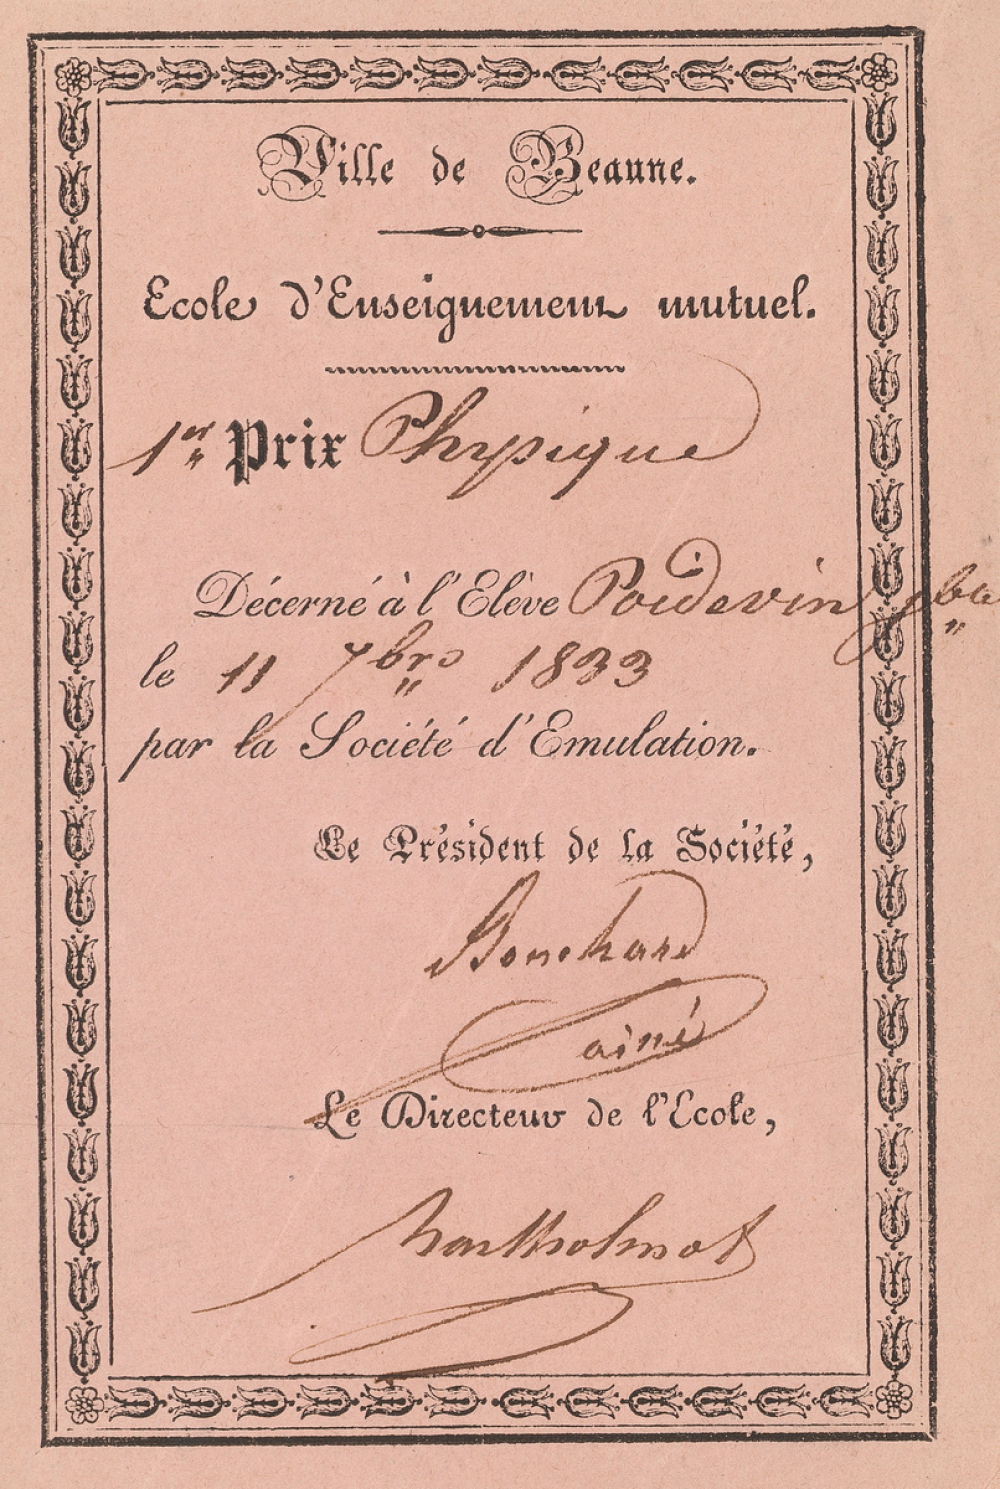 Ville de Beaune.
Ecole d'Enseignement mutuel.
1er Prix Physique
Décerné à l'Elève Poidevin
le 11 7bre 1833
par la Société d'Emulation.
Le Président de la Société,
Bouchard
ainé
Le Directeur de l'Ecole,